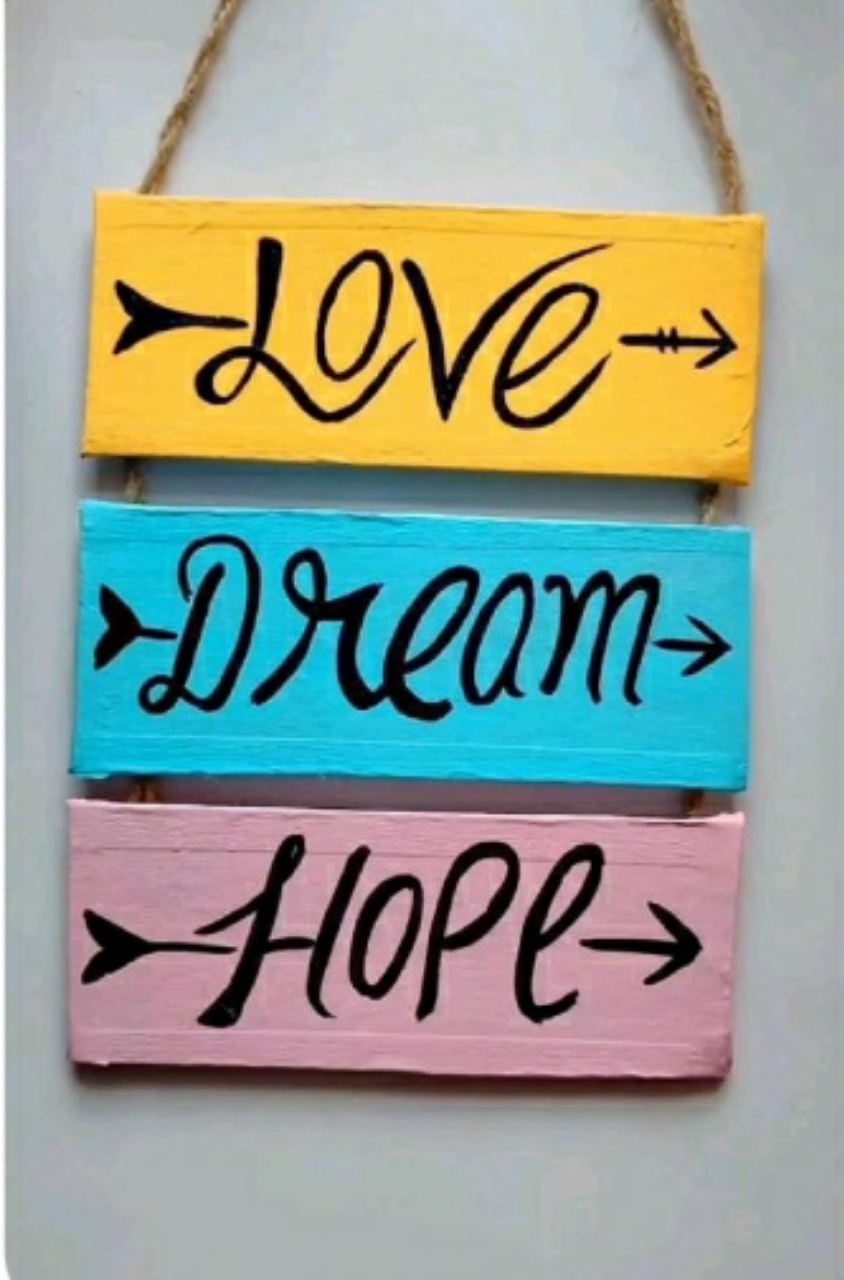 Love
Dream
Hope